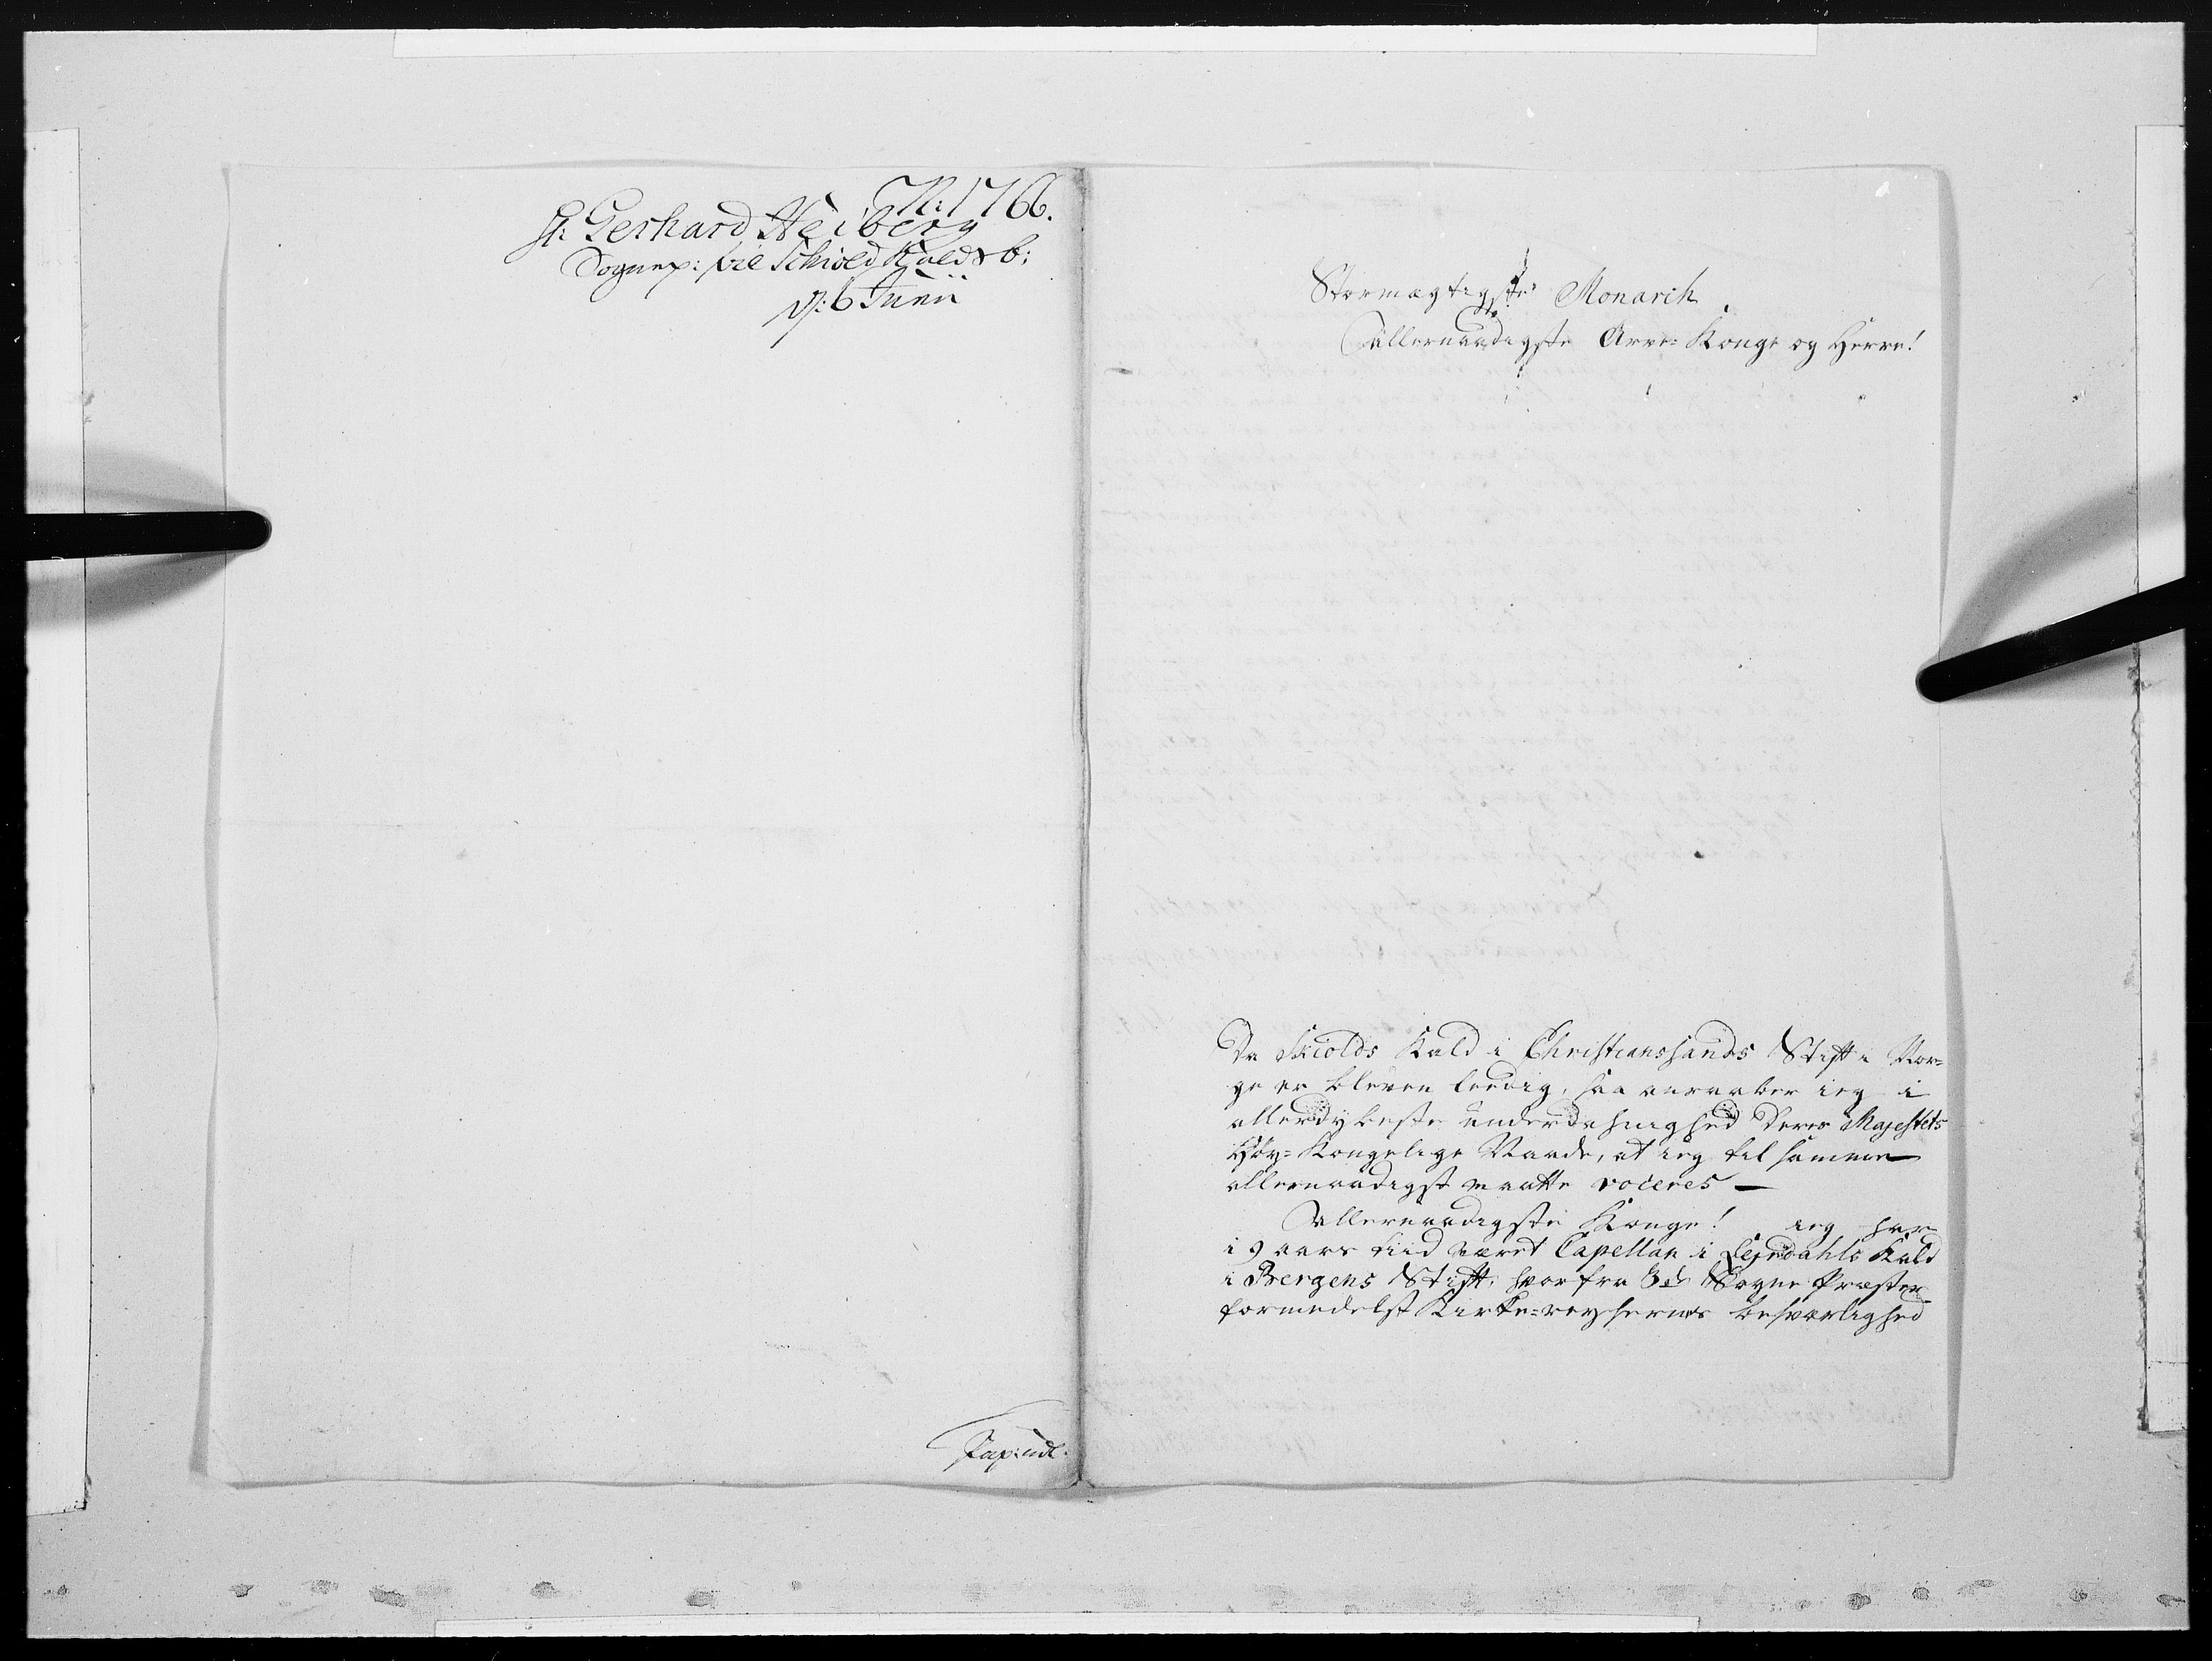 N: 1766.
Hr: Gerhard Heiberg
Sognep: til Schiold Kald &b:
d: 6 Junii
Pap: udl.
Stormægtigste Monarch
Allernaadigste Arve-Konge og Herre!
Da Skiolds Kald i Christianssands Stift i Nor-
ge er bleven leedig, saa anraaber ieg i
allerdybeste underdanighed Deres Majestets
Høy-Kongelige Naade, at ieg til samme
allernaadigst maatte voceres —
Allernaadigste Konge! ieg har
i 9 aars tiid været Capellan i Lejrdahls Kald
i Bergens Stift, hvorfra 3de Sogne Præster
formedelst Kirke-reysernes besværlighed